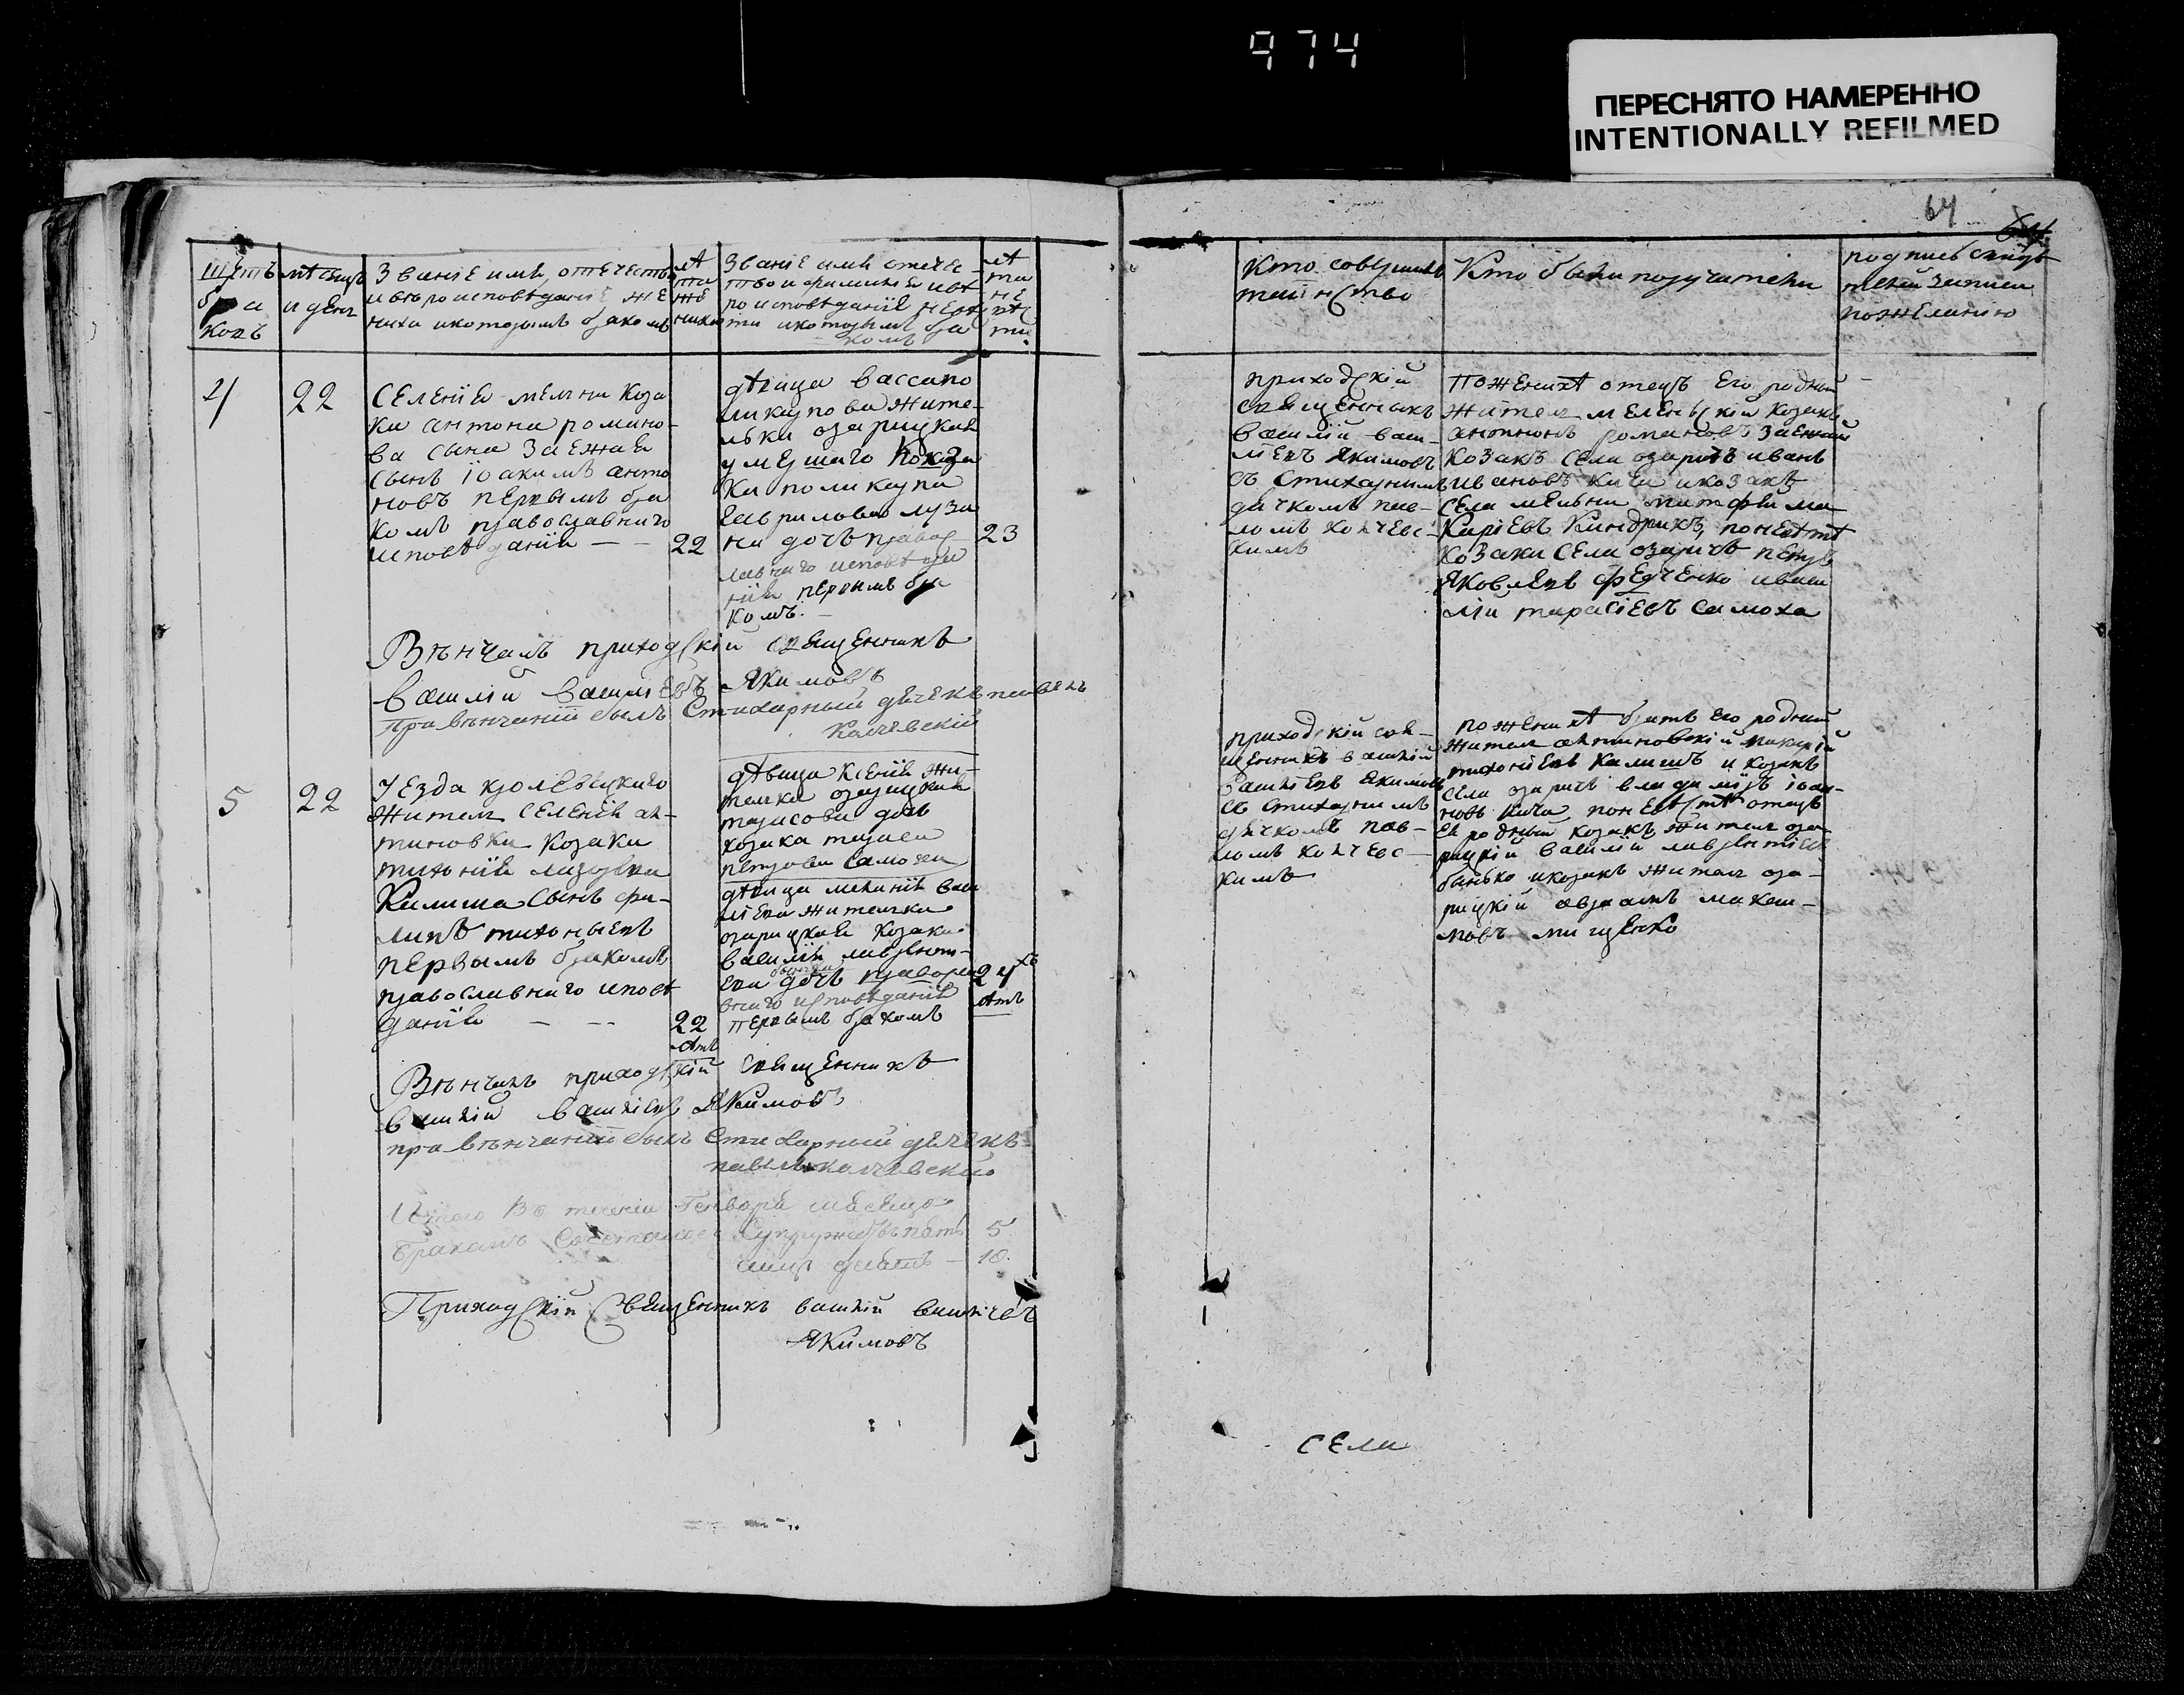 974
ПЕРЕСНЯТО НАМЕРЕННО
INTENTIONALLY REFILMED
64
Щетъ
бра
ковъ
мѣсяцъ
и день
Званіе имя отечеств
и вѣроисповѣданіе же
ниха и которымъ бракомъ
лѣ
та
же
ниха
Званіе имя отече
ство и фамилія и вѣ
роисповѣданіе невѣ
сти и которымъ бра
комъ
лѣ
та
не
вѣс
ти
4
22
Селенія мелни коза
ка антона романо
ва сына Заежая
сынъ іоакимъ анто
новъ первымъ бра
комъ православнаго
исповѣданія — —
22
дѣвица васса по
ликарпова жите
лька озарицкая
умершаго коза
ка поликарпа
гавриловa лузи
ни дочъ правос
лавнаго исповѣда
нія первымъ бра
комъ. —
23
Вѣнчалъ приходскій священникъ
василій василіевъ Якимовъ
При вѣнчаніи былъ Стихарный дячекъ павелъ
Калчевскій
5
22
Уезда кролевецкаго
Жител селенія ал
тиновки козака
Калиша сынъ фи
липъ тихоньевъ
первымъ бракомъ
православнаго исповѣ
данія — — —
22
лѣтъ
дѣвица ксенія жи
телка озарицкая
тарасова дочь
козака тараса
петрова самохи
дѣвица меланія васи
ліева жителка
озарицкая козака
василія лаврент
ева дочъ правосла
внаго исповѣданія
первымъ бракомъ
24хъ
лѣтъ
Вѣнчалъ приходскій священникъ
василій василіевъ Якимовъ
при вѣнчаніи былъ Стихарный дячекъ
павелъ калчевскій
Итого Въ теченіи Генваря мѣсяца
Бракомъ Сочеталось Супружествъ пять 5
лицъ десять — 10.
Приходскій Священникъ василій василіевъ
Якимовъ
Кто совершалъ
таинство
Кто были поручители
подпись свидѣ
телей записи
по желанію
приходскій
священникъ
василій васи
лiевъ Якимовъ
съ стихарнимъ
дячкомъ пав
ломъ колчевс
кимъ
По женихѣ отецъ его родный
жител меленскій козакъ
антонъ романовъ Заежай
козакъ села озаричъ иванъ
ивановъ Кича и козакъ
села мельни
Каріевъ Киндрихъ, по невѣстѣ
козаки села озаричъ петръ
Яковлевъ Федченко и васи
лій тарасіевъ самоха
приходскій свя
щенникъ василій
василіевъ Якимовъ
съ стихарнимъ
дячкомъ пав
ломъ колчевс
кимъ
по женихѣ братъ его родный
жител алтиновскій макарій
тихоніевъ Калишъ и козакъ
села озаричъ владиміръ іоан
новъ кича по невѣстѣ отецъ
ея родный козакъ жител оза
рицкій василій лаврентіевъ
бынько и козакъ жител оза
рицкій авраамъ макси
мовъ мищенко
села